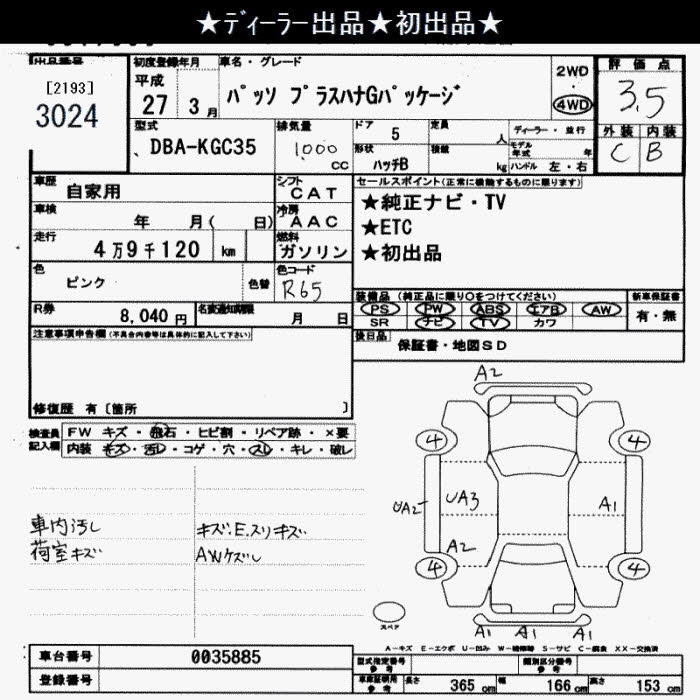 ★ディーラー出品★初出品★
出品番号 初度登録年月 車名・グレード 評価点
[2193] 平成 2WD
3024 27 3月 パッソ プラスハナGパッケージ 4WD 3.5
型式 排気量 ドア 5 定員 人 ディーラー・並行 外装 内装
DBA-KGC35 1,000 cc 形状 ハッチB 積載 kg モデル年式 年 ハンドル 左・右 C B
車歴 自家用 シフト CAT セールスポイント(正常に機能するものに限ります)
車検 年 月( 日) 冷房 AAC ★純正ナビ・TV
走行 4万9千120 km 燃料 ガソリン ★ETC
★初出品
色 ピンク 色替 色コード R65
装備品 (純正品に限り○をつけてください) 新車保証書
R券 8,040円 名変通知期限 月 日 PS PW ABS エアB AW 有・無
SR ナビ TV カワ
注意事項申告欄(不具合内容等は具体的に記入して下さい) 後日品 保証書・地図SD
修復歴 有〔箇所 〕
検査員記入欄 FW キズ・飛石・ヒビ割・リペア跡・×要
内装 キズ・汚レ・コゲ・穴・スレ・キレ・破レ
A2
4 4
UA2 UA3 A1
A2
4 4
A1 A1 A1
車内汚し キズ.E.スリキズ
荷室キズ AWケズレ
スペア
A-キズ E-エクボ U-凹み W-補修跡 S-サビ C-腐食 XX-交換済
車台番号 0035885 型式指定番号 参考 類別区分番号 参考
登録番号 車庫証明用 参考 長さ 365cm 幅 166cm 高さ 153cm